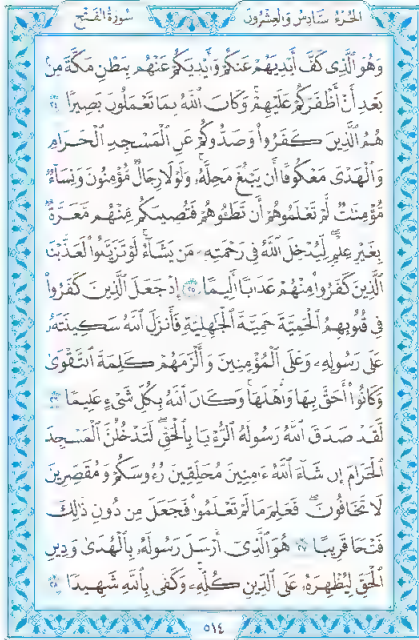 سُورَةُ الفَتْحِ الجُزءُ سَادِس وَالعِشْرُون
وَهُوَ ٱلَّذِى كَفَّ أَيْدِيَهُمْ عَنكُمْ وَأَيْدِيَكُمْ عَنْهُم بِبَطْنِ مَكَّةَ مِنۢ
بَعْدِ أَنْ أَظْفَرَكُمْ عَلَيْهِمْ ۚ وَكَانَ ٱللَّهُ بِمَا تَعْمَلُونَ بَصِيرًا ٢٤
هُمُ ٱلَّذِينَ كَفَرُوا۟ وَصَدُّوكُمْ عَنِ ٱلْمَسْجِدِ ٱلْحَرَامِ
وَٱلْهَدْىَ مَعْكُوفًا أَن يَبْلُغَ مَحِلَّهُۥ ۚ وَلَوْلَا رِجَالٌ مُّؤْمِنُونَ وَنِسَآءٌ
مُّؤْمِنَٰتٌ لَّمْ تَعْلَمُوهُمْ أَن تَطَـُٔوهُمْ فَتُصِيبَكُم مِّنْهُم مَّعَرَّةٌۢ
بِغَيْرِ عِلْمٍ ۖ لِّيُدْخِلَ ٱللَّهُ فِى رَحْمَتِهِۦ مَن يَشَآءُ ۚ لَوْ تَزَيَّلُوا۟ لَعَذَّبْنَا
ٱلَّذِينَ كَفَرُوا۟ مِنْهُمْ عَذَابًا أَلِيمًا ٢٥ إِذْ جَعَلَ ٱلَّذِينَ كَفَرُوا۟
فِى قُلُوبِهِمُ ٱلْحَمِيَّةَ حَمِيَّةَ ٱلْجَٰهِلِيَّةِ فَأَنزَلَ ٱللَّهُ سَكِينَتَهُۥ
عَلَىٰ رَسُولِهِۦ وَعَلَى ٱلْمُؤْمِنِينَ وَأَلْزَمَهُمْ كَلِمَةَ ٱلتَّقْوَىٰ
وَكَانُوٓا۟ أَحَقَّ بِهَا وَأَهْلَهَا ۚ وَكَانَ ٱللَّهُ بِكُلِّ شَىْءٍ عَلِيمًا ٢٦
لَّقَدْ صَدَقَ ٱللَّهُ رَسُولَهُ ٱلرُّءْيَا بِٱلْحَقِّ ۖ لَتَدْخُلُنَّ ٱلْمَسْجِدَ
ٱلْحَرَامَ إِن شَآءَ ٱللَّهُ ءَامِنِينَ مُحَلِّقِينَ رُءُوسَكُمْ وَمُقَصِّرِينَ
لَا تَخَافُونَ ۖ فَعَلِمَ مَا لَمْ تَعْلَمُوا۟ فَجَعَلَ مِن دُونِ ذَٰلِكَ
فَتْحًا قَرِيبًا ٢٧ هُوَ ٱلَّذِىٓ أَرْسَلَ رَسُولَهُۥ بِٱلْهُدَىٰ وَدِينِ
ٱلْحَقِّ لِيُظْهِرَهُۥ عَلَى ٱلدِّينِ كُلِّهِۦ ۚ وَكَفَىٰ بِٱللَّهِ شَهِيدًا ٢٨
٥١٤